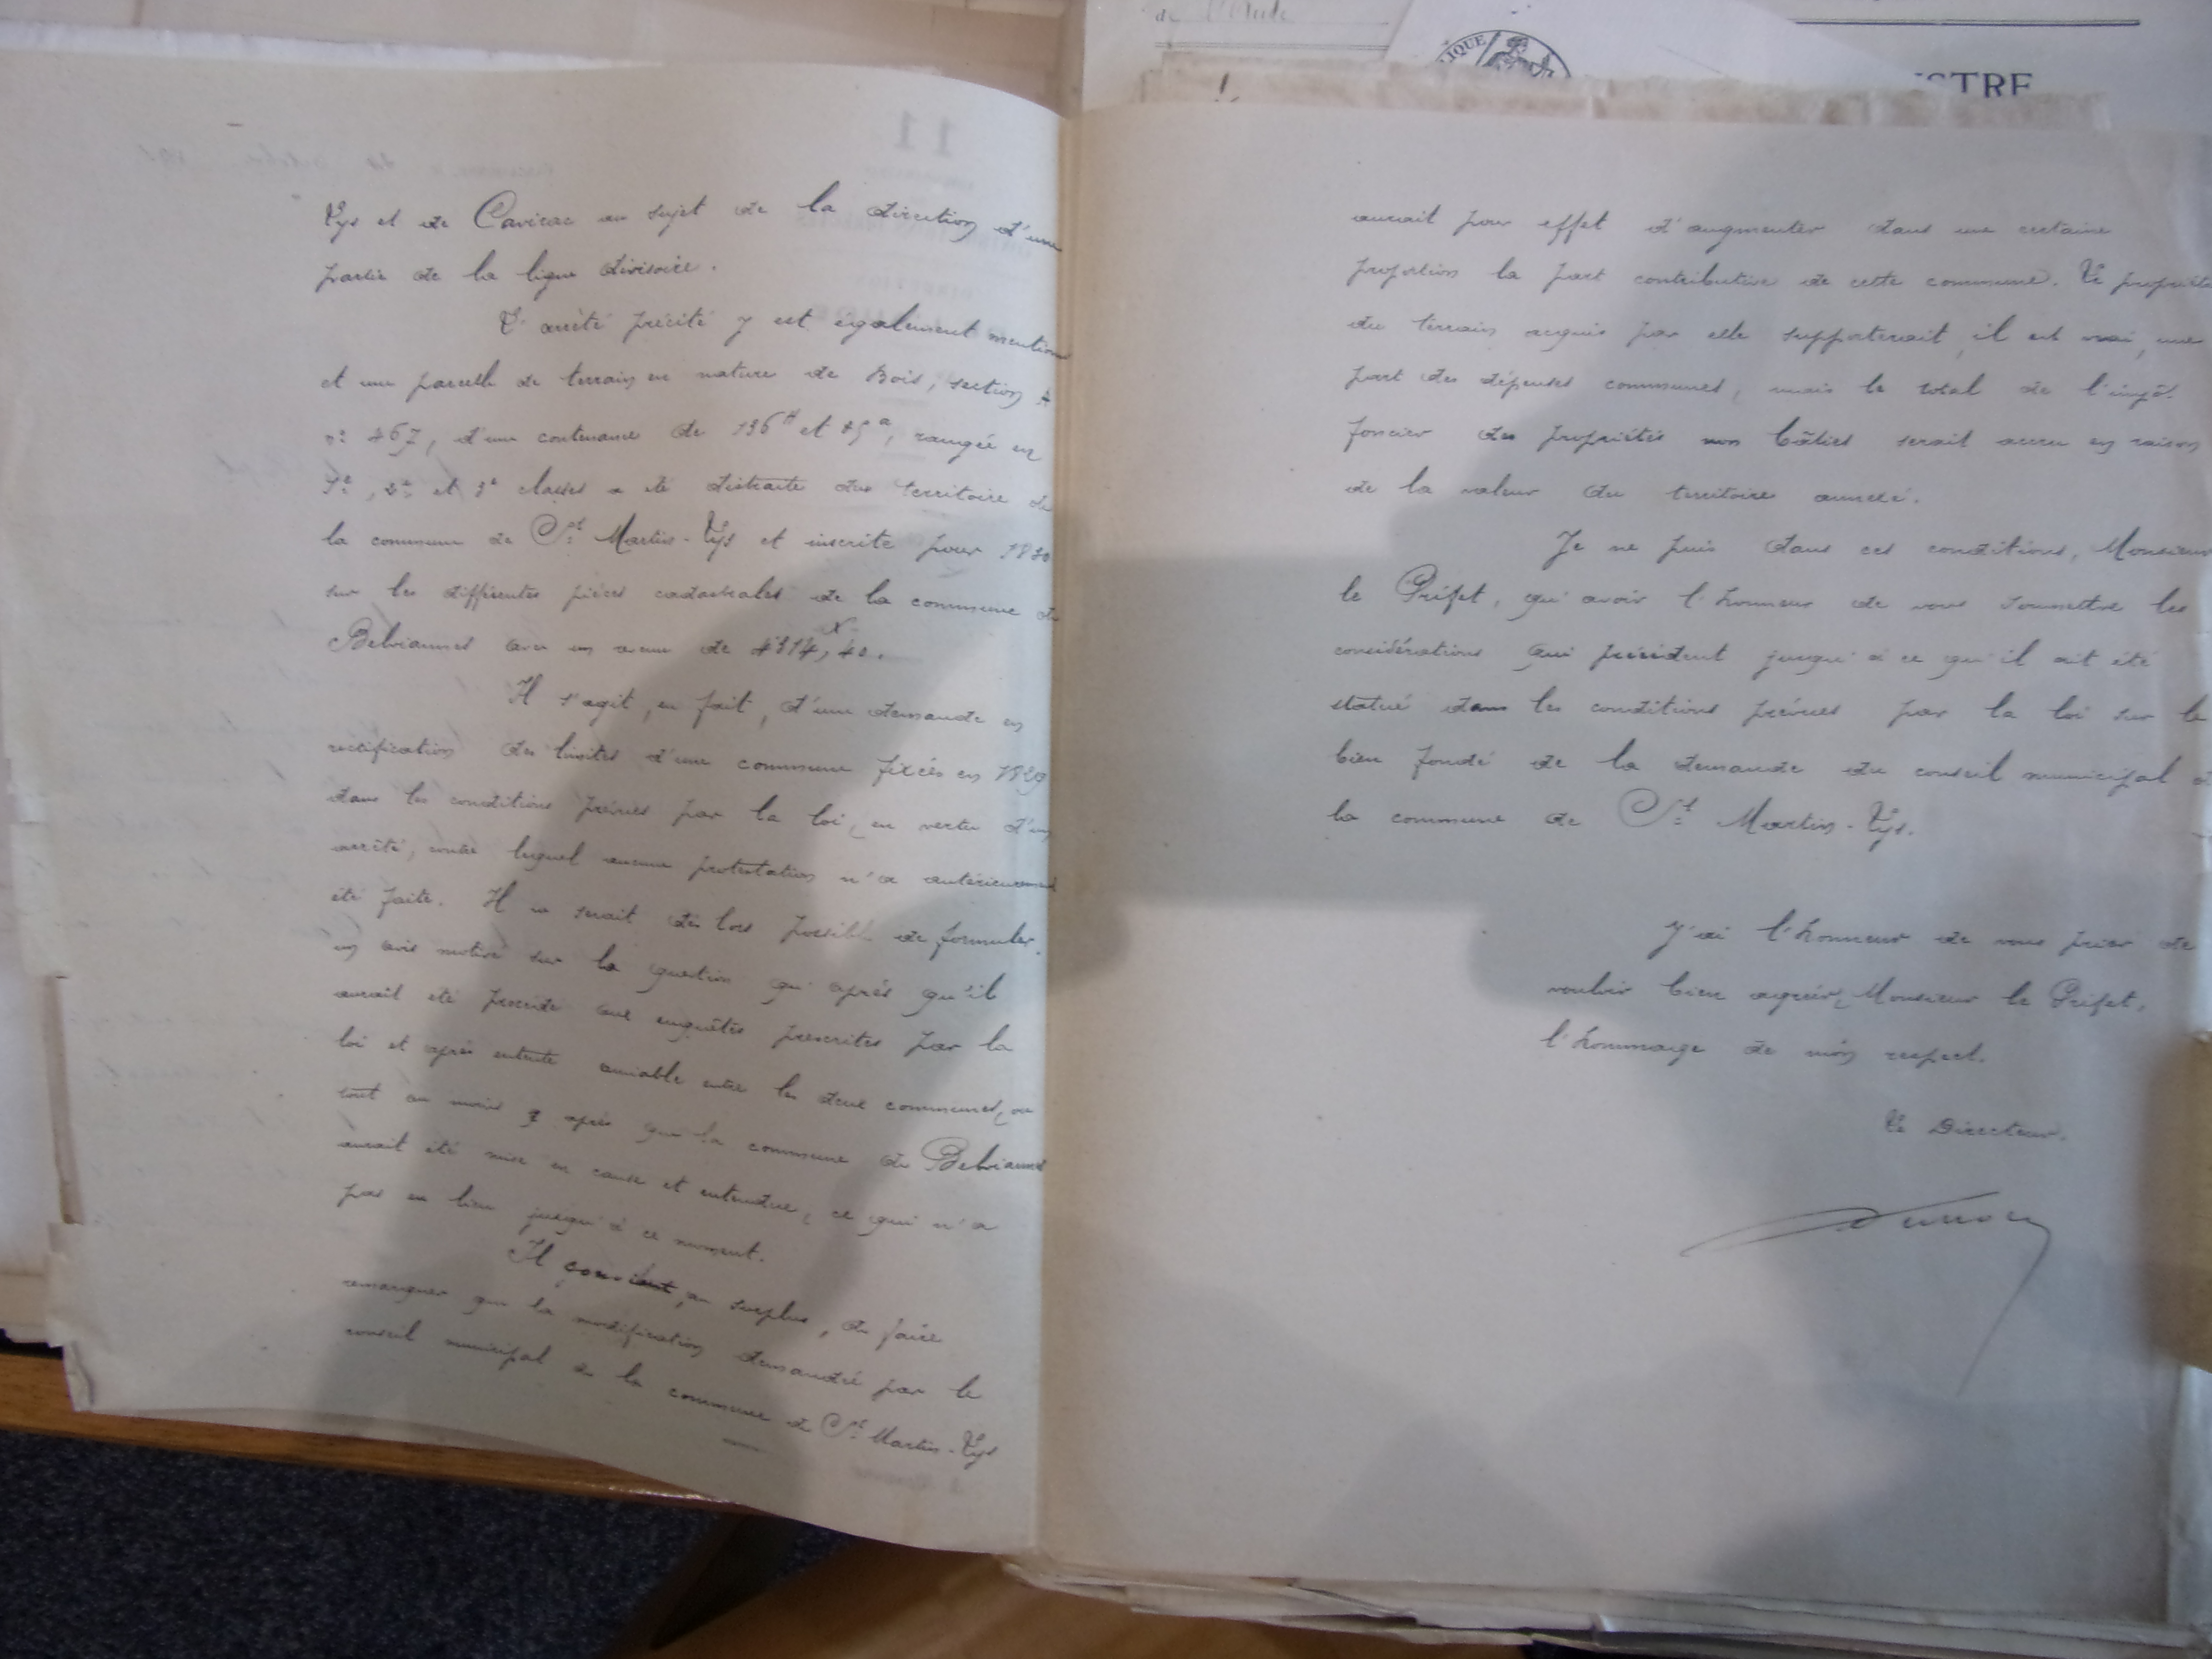 de l'Aude
IQUE
STRE
Lys et de Cavirac au sujet de la direction d'une
partie de la ligne divisoire.
L'arrêté précité y est également mention
et une parcelle de terrain en nature de Bois, section A
n° 467, d'une contenance de 136H et 85a, rangée en
1e, 2e et 3e classes a été distraite du territoire de
la commune de St Martin-Lys et inscrite pour 1830
sur les différentes pièces cadastrales de la commune de
Belvianes avec un revenu de 4314,40.
Il s'agit, en fait, d'une demande en
rectification des limites d'une commune fixées en 1829
dans les conditions prévues par la loi, en vertu d'un
arrêté, contre lequel aucune protestation n'a antérieurement
été faite. Il ne serait dès lors possible de formuler
un avis motivé sur la question qu'après qu'il
aurait été procédé aux enquêtes prescrites par la
loi et après entente amiable entre les deux communes, ou
tout au moins après que la commune de Belvianes
aurait été mise en cause et entendue, ce qui n'a
pas eu lieu jusqu'à ce moment.
Il convient, au surplus, de faire
remarquer que la modification demandée par le
conseil municipal de la commune de St Martin-Lys
aurait pour effet d'augmenter dans une certaine
proportion la part contributive de cette commune. Le propriéta
du terrain acquis par elle supporterait, il est vrai, une
part des dépenses communes, mais le total de l'impôt
foncier des propriétés non bâties serait accru en raison
de la valeur du territoire annexé.
Je ne puis dans ces conditions, Monsieur
le Préfet, qu'avoir l'honneur de vous soumettre les
considérations qui précèdent jusqu'à ce qu'il ait été
statué dans les conditions prévues par la loi sur le
bien fondé de la demande du conseil municipal d
la commune de St Martin-Lys.
J'ai l'honneur de vous prier de
vouloir bien agréer, Monsieur le Préfet,
l'hommage de mon respect.
Le Directeur.